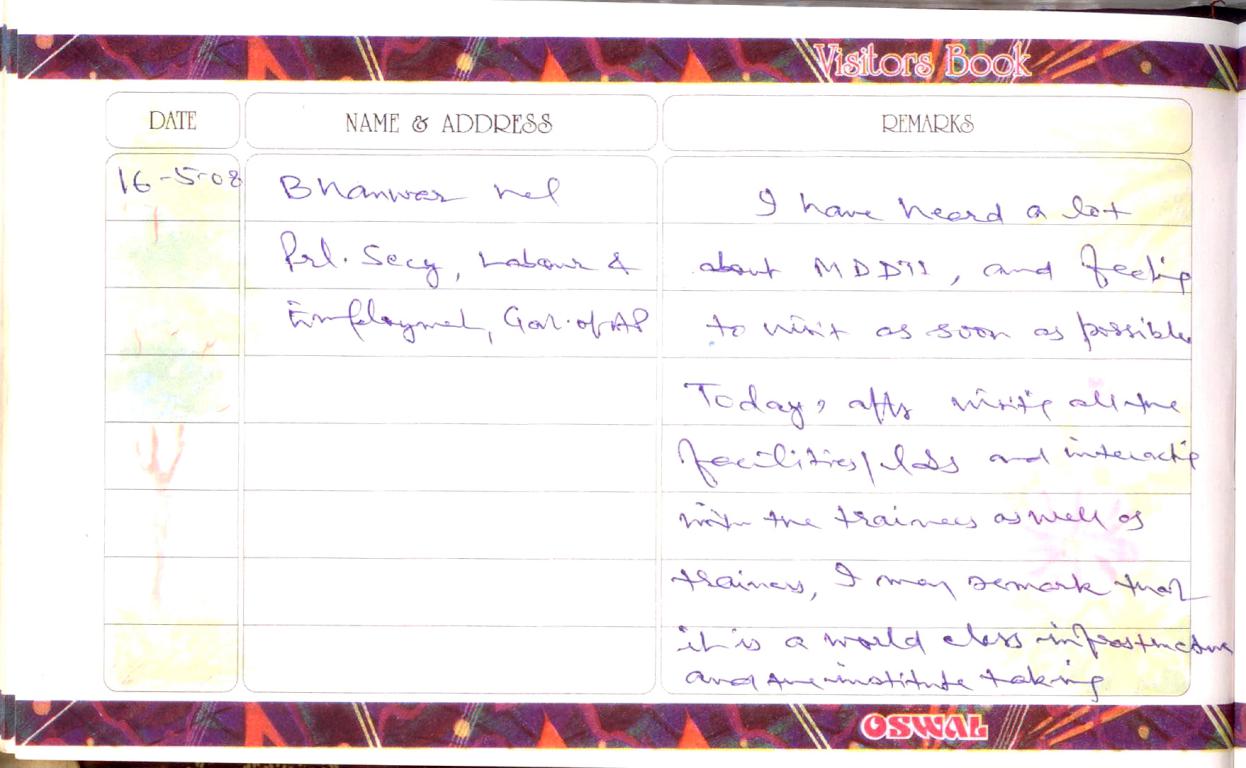 Visitors Book
DATE NAME & ADDRESS REMARKS
16-5-08
Bhanwar
Prl. Secy, Labour &
Employment, Govt. of AP
I have heard a lot
about MDDTI, and feeling
to visit as soon as possible
Today, after visiting all the
facilities/labs and interacting
with the trainees as well as
trainers, I may remark that
it is a world class infrastructure
and the institute taking
OSWAL